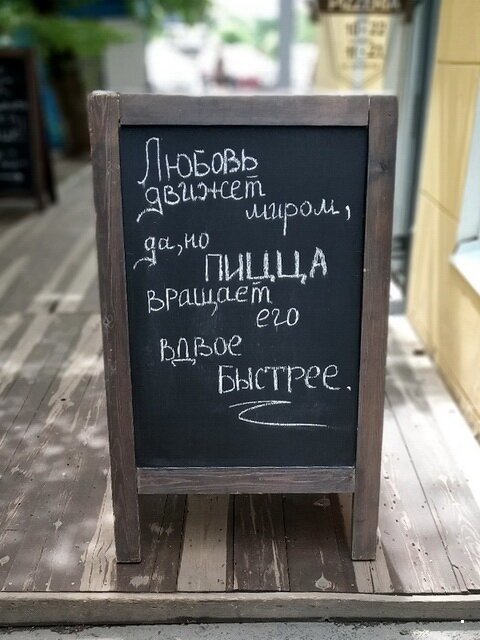 PIZZERIA
Любовь
движет
миром,
да, но
ПИЦЦА
вращает
его
вдвое
БЫСТРЕЕ.